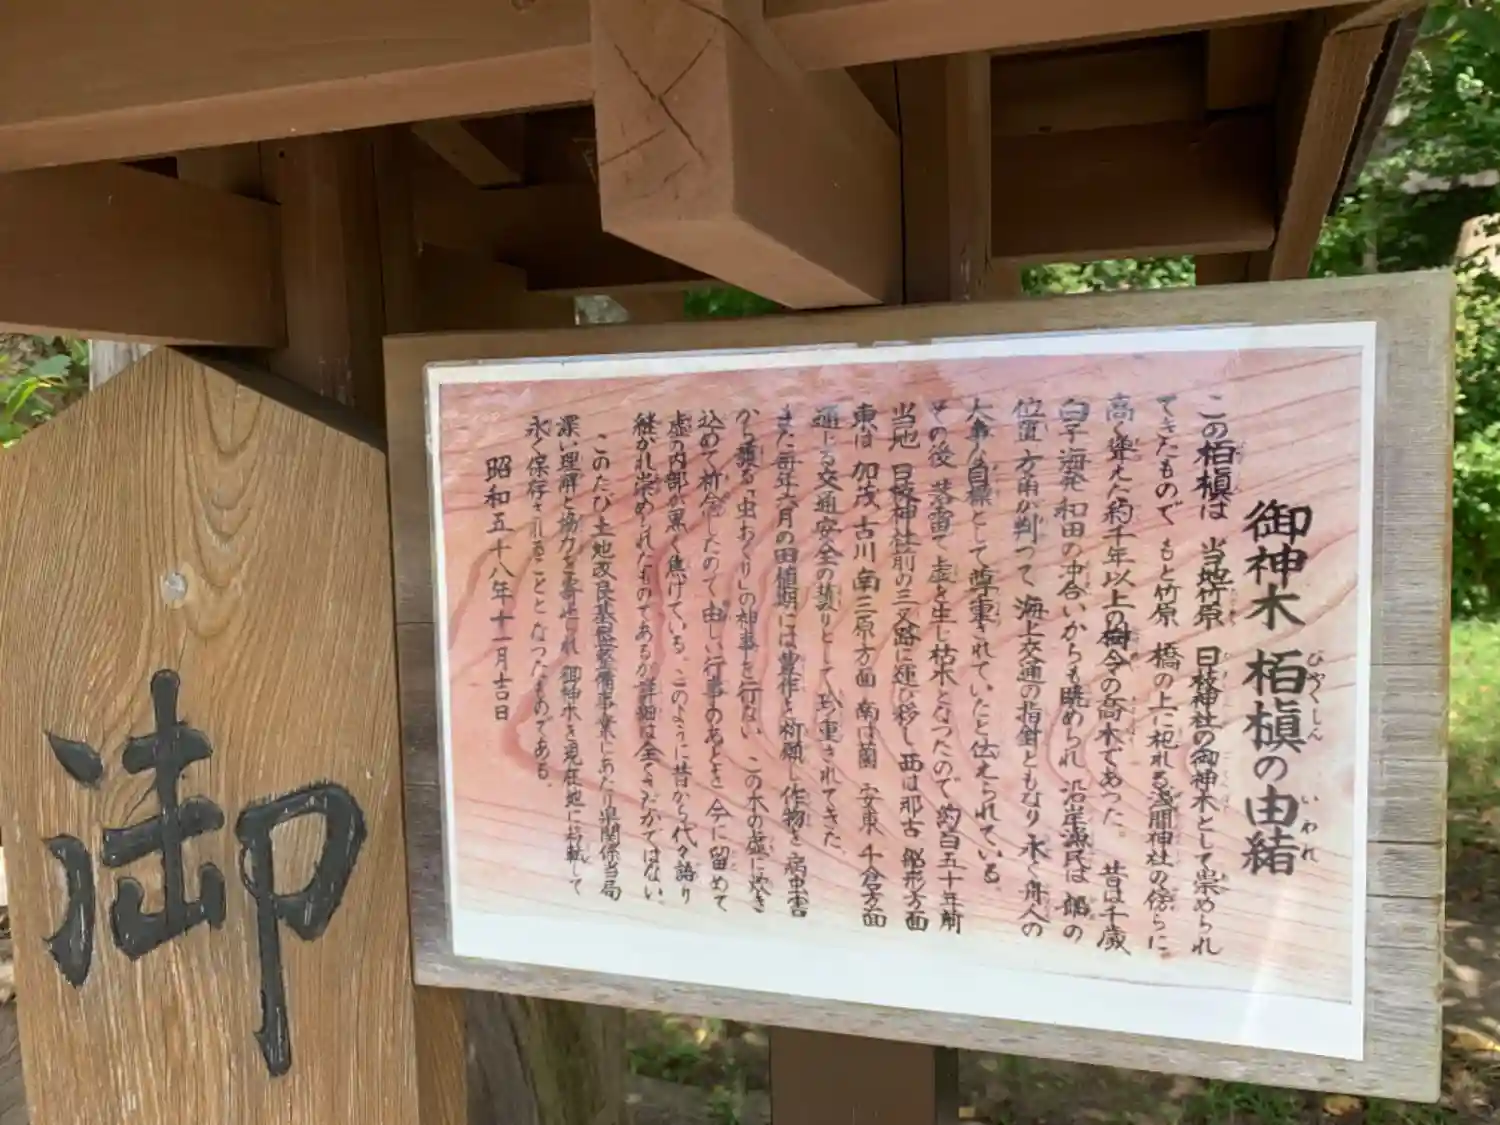 御神木 栢槇の由緒
びゃくしん いわれ
この栢槇は 当地竹原 日枝神社の御神木として崇められ
てきたもので もと竹原 橋の上に祀れる浅間神社の傍らに
高く聳えた約千年以上の樹令の高木であった。 昔は千歳
白子海発 和田の沖合いからも眺められ 沿岸漁民は 船の
位置 方角が判って 海上交通の指針ともなり 永く舟人の
大事な目標として尊重されていたと伝えられている。
その後 落雷で虚を生じ枯木となったので 約百五十年前
当地 日枝神社前の三叉路に運び移し 西は那古 船形方面
東は 加茂 古川 南三原方面 南は 安東 千倉方面
通じる交通安全の護りとして珍重されてきた。
また毎年六月の田植期には豊作を祈願し 作物を 病虫害
から護る「虫おくり」の神事を行ない この木の虚に
込めて祈念したので 由しい行事のあるとき 今に留めて
虚の内部が黒く焦げている。このように昔から代々語り
継がれ崇められたものであるが詳細は全くさだかではない。
このたび土地改良基盤整備事業にあたり県関係当局
深い理解と協力を寄せられ 御神木を現在地に移転して
永く保存されることとなったものである。
昭和五十八年十一月吉日
御